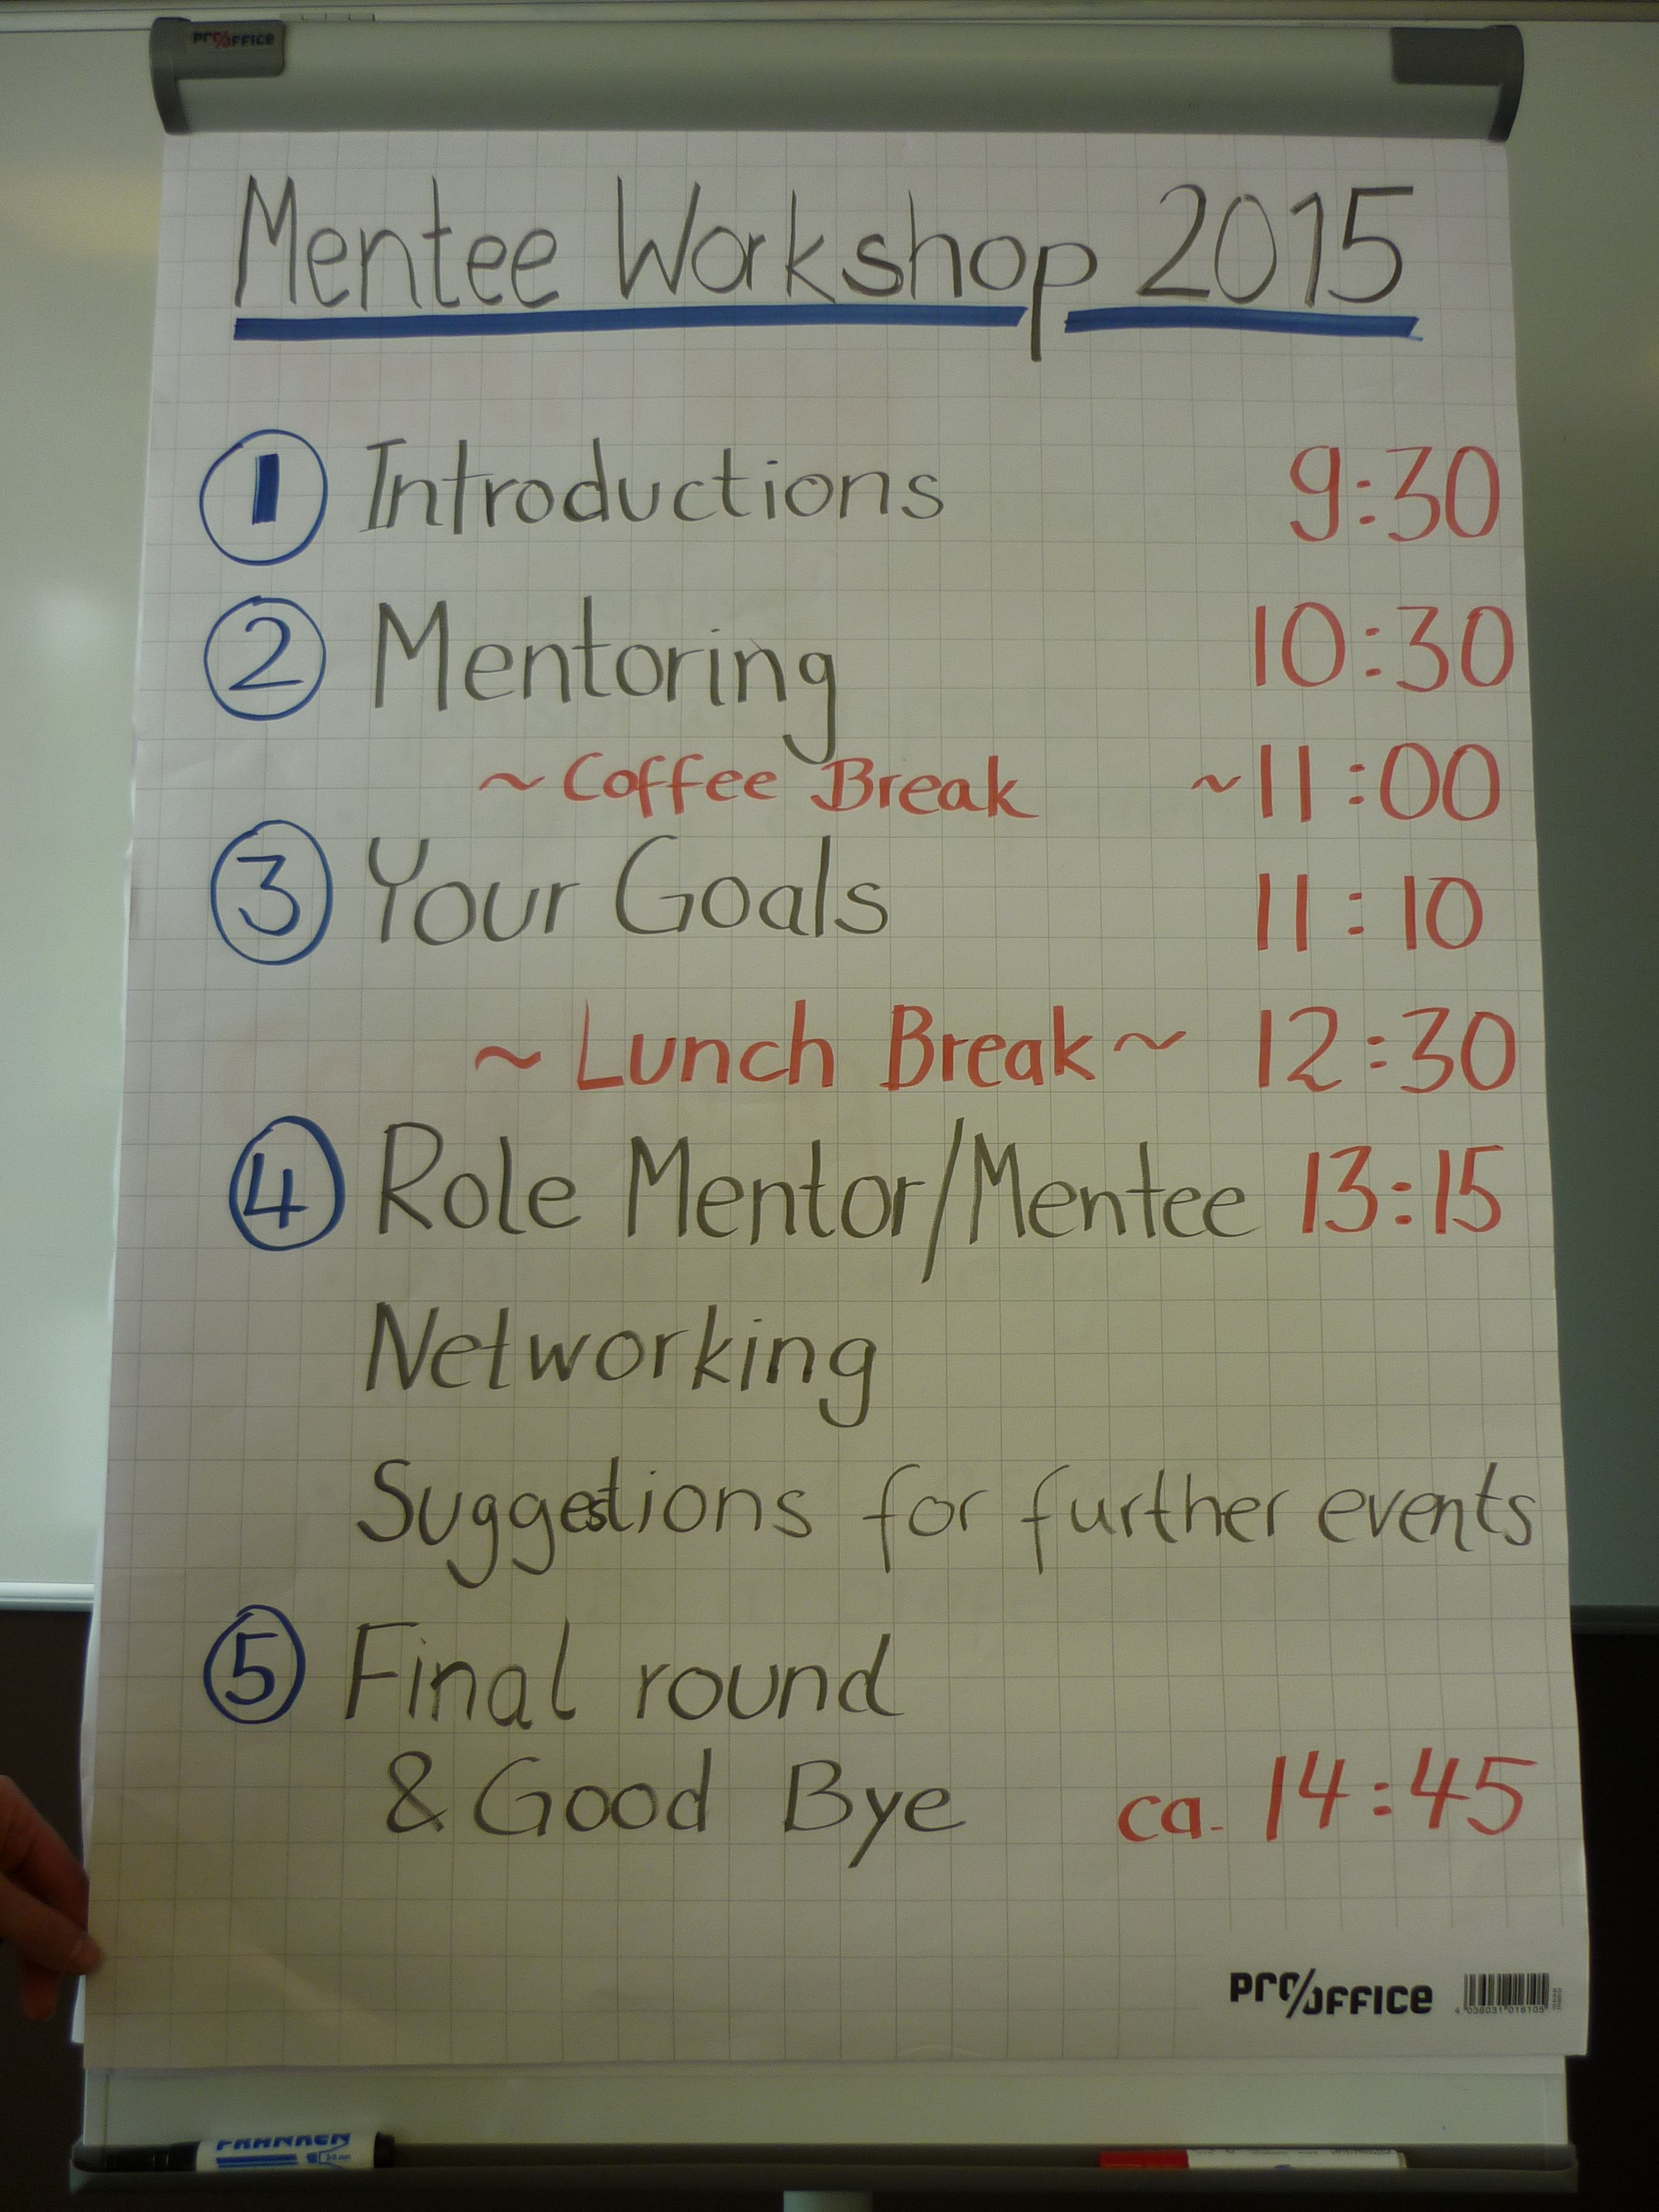 pro/OFFICE
Mentee Workshop 2015
1 Introductions 9:30
2 Mentoring 10:30
~ Coffee Break ~11:00
3 Your Goals 11:10
~ Lunch Break ~ 12:30
4 Role Mentor/Mentee 13:15
Networking
Suggestions for further events
5 Final round
& Good Bye ca. 14:45
pro/OFFICE
4 038031 016105
FRANKEN